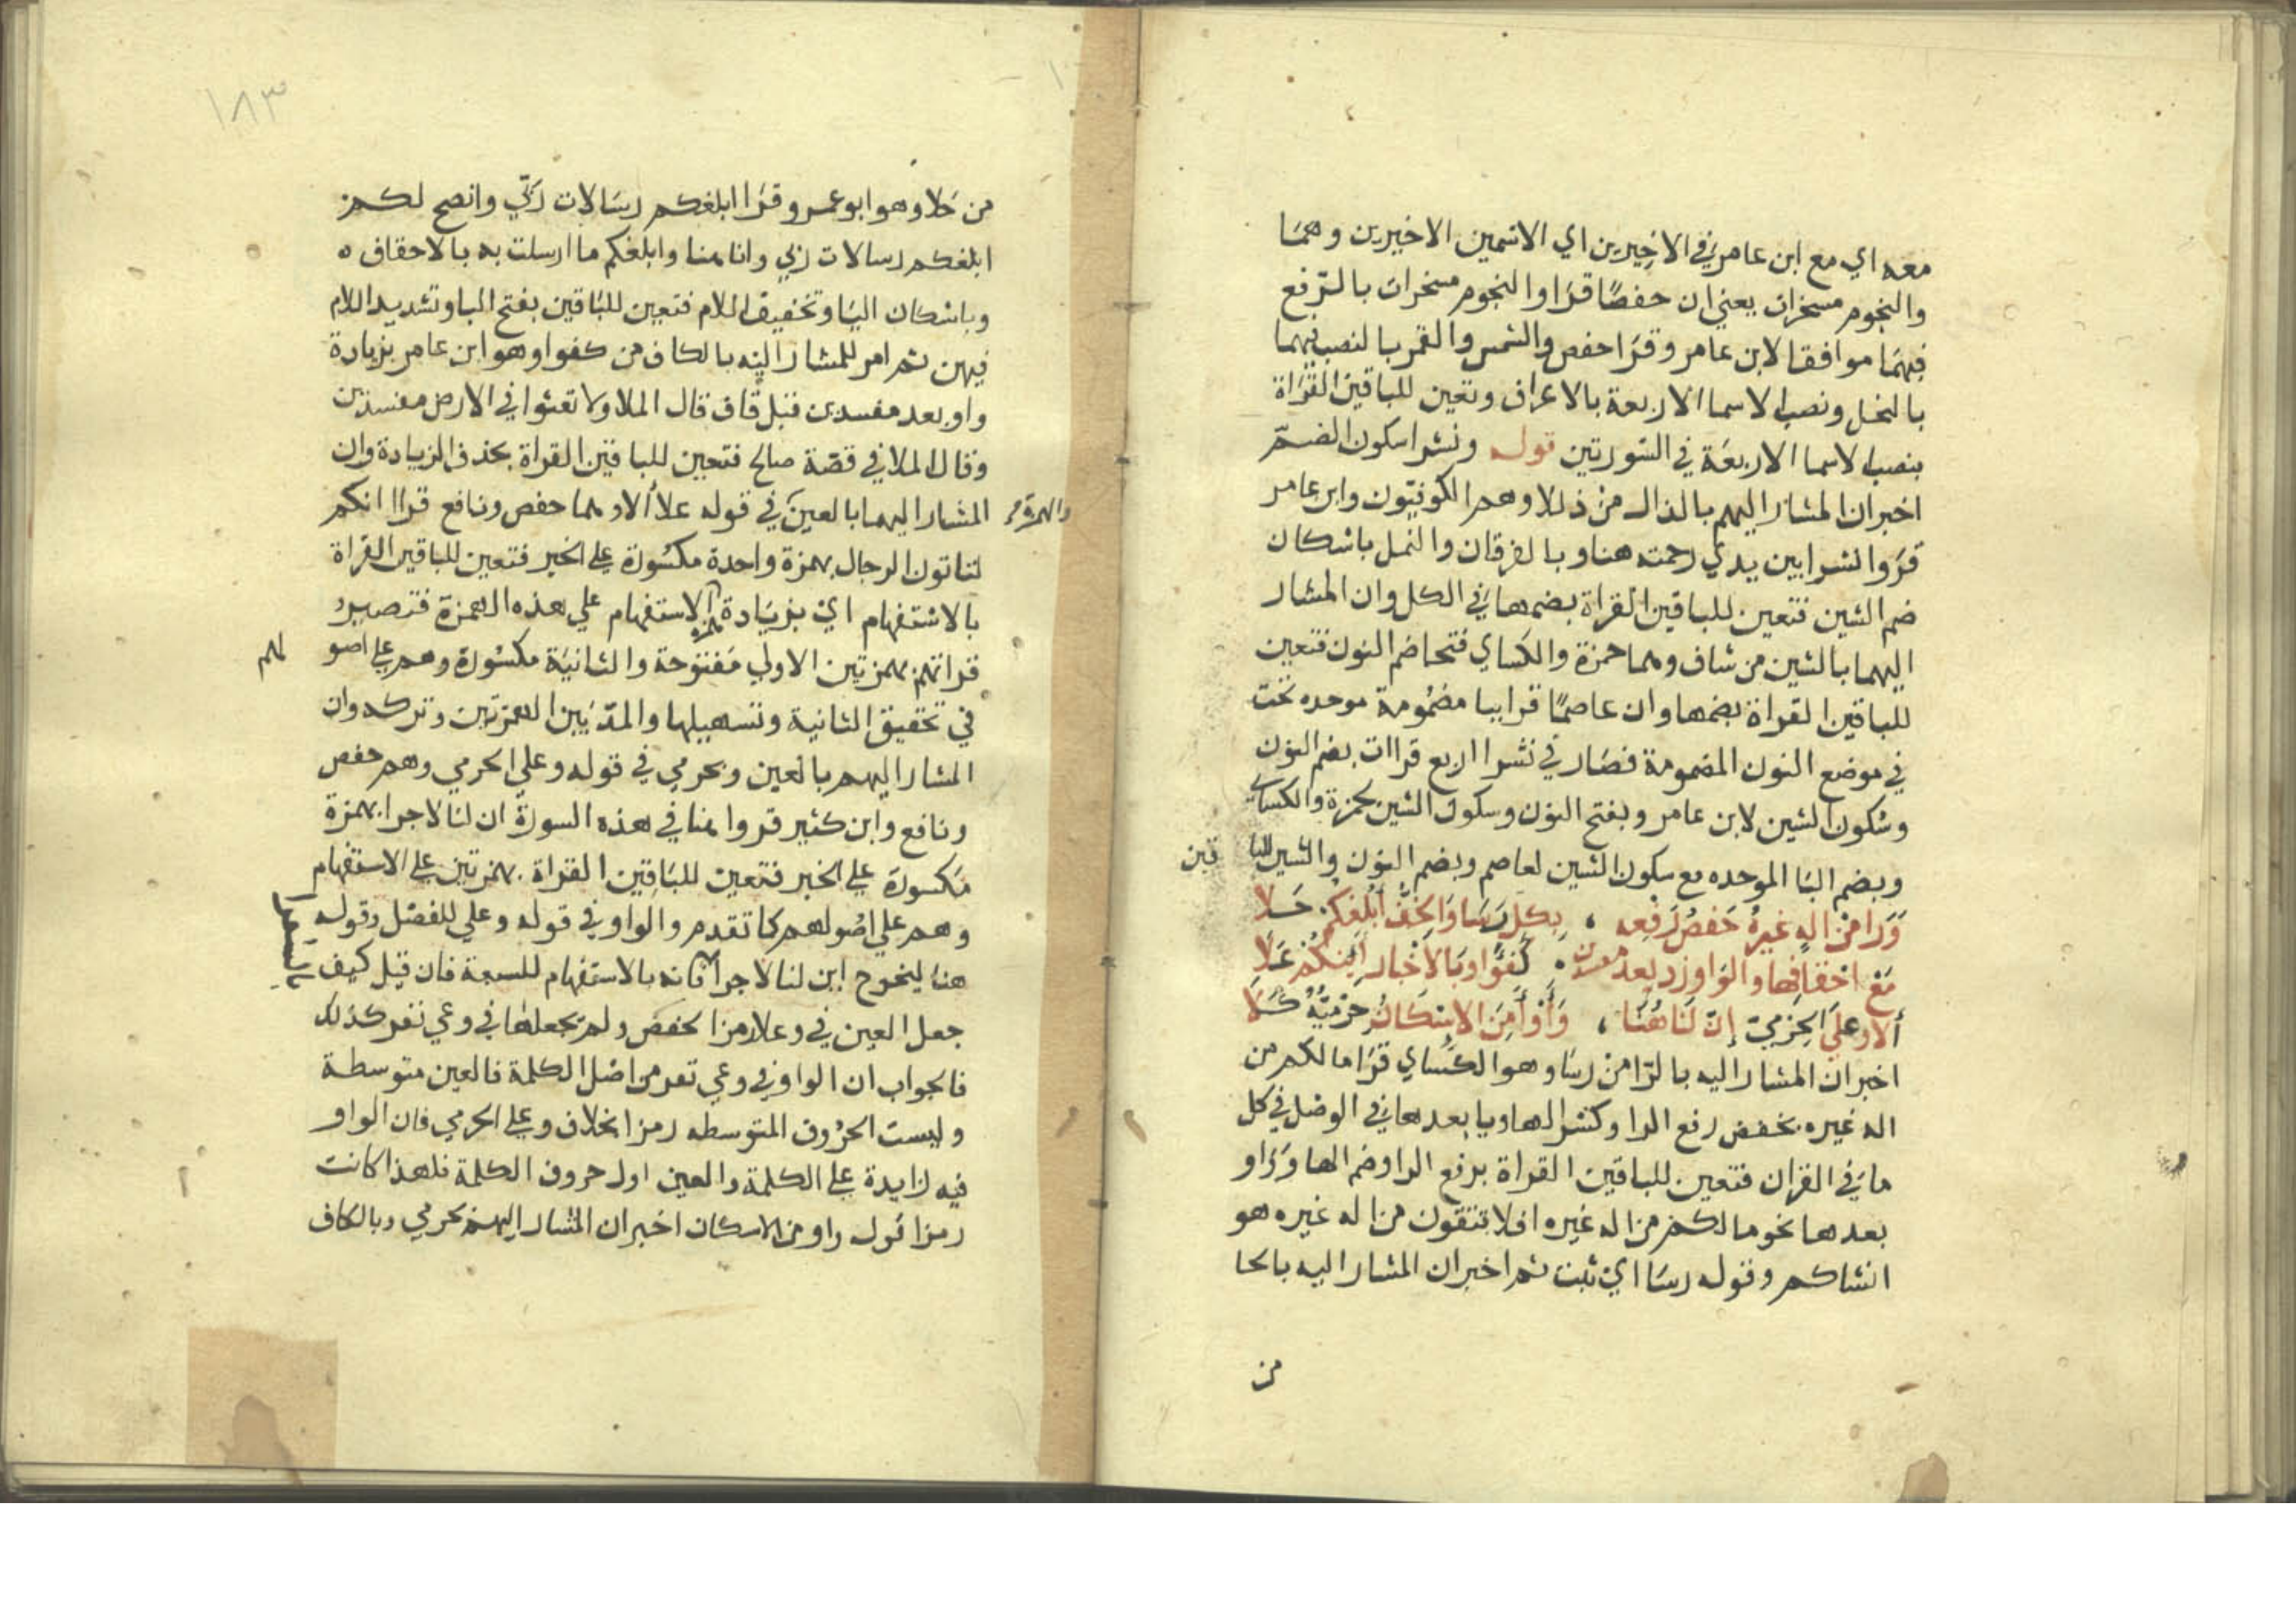 معه اي مع ابن عامر في الاخيرين اي الاسمين الاخيرين وهما
والنجوم مسخرات يعني ان حفصا قرا والنجوم مسخرات بالرفع
فيهما موافقا لابن عامر وقرا حفص والشمس والقمر بالنصب فيهما
بالنحل ونصب الاسما الاربعة بالاعراف وتعين للباقين القراة
بنصب الاسما الاربعة في السورتين قوله ونشرا سكون الضم
اخبر ان المشار اليهم بالذال من ذللا وهم الكوفيون وابن عامر
قروا نشرا بين يدي رحمته هنا وبالفرقان والنمل باسكان
ضم الشين فتعين للباقين القراة بضمها في الكل وان المشار
اليهما بالشين من شاف وهما حمزة والكساي فتحا ضم النون فتعين
للباقين القراة بضمها وان عاصما قرا بيا مضمومة موحده تحت
في موضع النون المضمومة فصار في نشرا اربع قراات بضم النون
وسكون الشين لابن عامر وبفتح النون وسكون الشين لحمزة والكساي
وبضم البا الموحده مع سكون الشين لعاصم وبضم النون والشين للبا قين
وَرَا مِنْ الهٍ غيرُهُ خَفضُ رَفعِه ، بِكلٍ رَسَا وَالخِفُّ أُبْلِغكم حَلا
مَعَ احْقافِها والوَاوَ زد بعدَ مفسدين ، كُفؤًا وبالاخْبارِ اِنكم عَلا
ألا وعلى الحِرْميّ إنّ لَنا هُنَا ، وَأَوْأَمِنَ الاِسْكانُ حِرْمِيُّهُ كَلا
اخبر ان المشار اليه بالرا من رسا وهو الكساي قرا ما لكم من
اله غيره بخفض رفع الرا وكسر الها ويا بعدها في الوصل في كل
ما في القران فتعين للباقين القراة برفع الرا وضم الها وواو
بعدها نحو ما لكم من اله غيره افلا تتقون من اله غيره هو
انشاكم وقوله رسا اي ثبت ثم اخبر ان المشار اليه بالحا
من
١٨٣
من حلا وهو ابو عمرو قرا ابلغكم رسالات ربي وانصح لكم
ابلغكم رسالات ربي وانا هنا وابلغكم ما ارسلت به بالاحقاف ه
وباسكان البا وتخفيف اللام فتعين للباقين بفتح البا وتشديد اللام
فيهن ثم امر للمشار اليه بالكاف من كفوا وهو ابن عامر بزيادة
واو بعد مفسدين قبل قاف قال الملا ولا تعثوا في الارض مفسدين
وقال الملا في قصة صالح فتعين للباقين القراة بحذف الزيادة وان
المشار اليهما بالعين في قوله علا ألا وهما حفص ونافع قراا انكم
لتاتون الرجال بهمزة واحدة مكسورة على الخبر فتعين للباقين القراة
بالاستفهام اي بزيادة همزة الاستفهام على هذه الهمزة فتصير
قراتهم بهمزتين الاولي مفتوحة والثانية مكسورة وهم على اصو لهم
في تحقيق الثانية وتسهيلها والمد بين الهمزتين وتركه وان
المشار اليهم بالعين وبحرمي في قوله وعلي الحرمي وهم حفص
ونافع وابن كثير قروا هنا في هذه السورة ان لنا لاجرا بهمزة
مكسورة على الخبر فتعين للباقين القراة بهمزتين على الاستفهام
وهم على اصولهم كما تقدم والواو في قوله وعلي للفصل وقوله
هنا ليخرج اين لنا لاجرا فانه بالاستفهام للسبعة فان قيل كيف
جعل العين في وعلا رمزا لحفص ولم يجعلها في وعي نفر كذلك
فالجواب ان الواو في وعي نفر من اصل الكلمة فالعين متوسطة
وليست الحروف المتوسطه رمزا بخلاف وعلى الحرمي فان الواو
فيه زايدة على الكلمة والعين اول حروف الكلمة فلهذا كانت
رمزا قوله واو من الاسكان اخبر ان المشار اليهم بحرمي وبالكاف